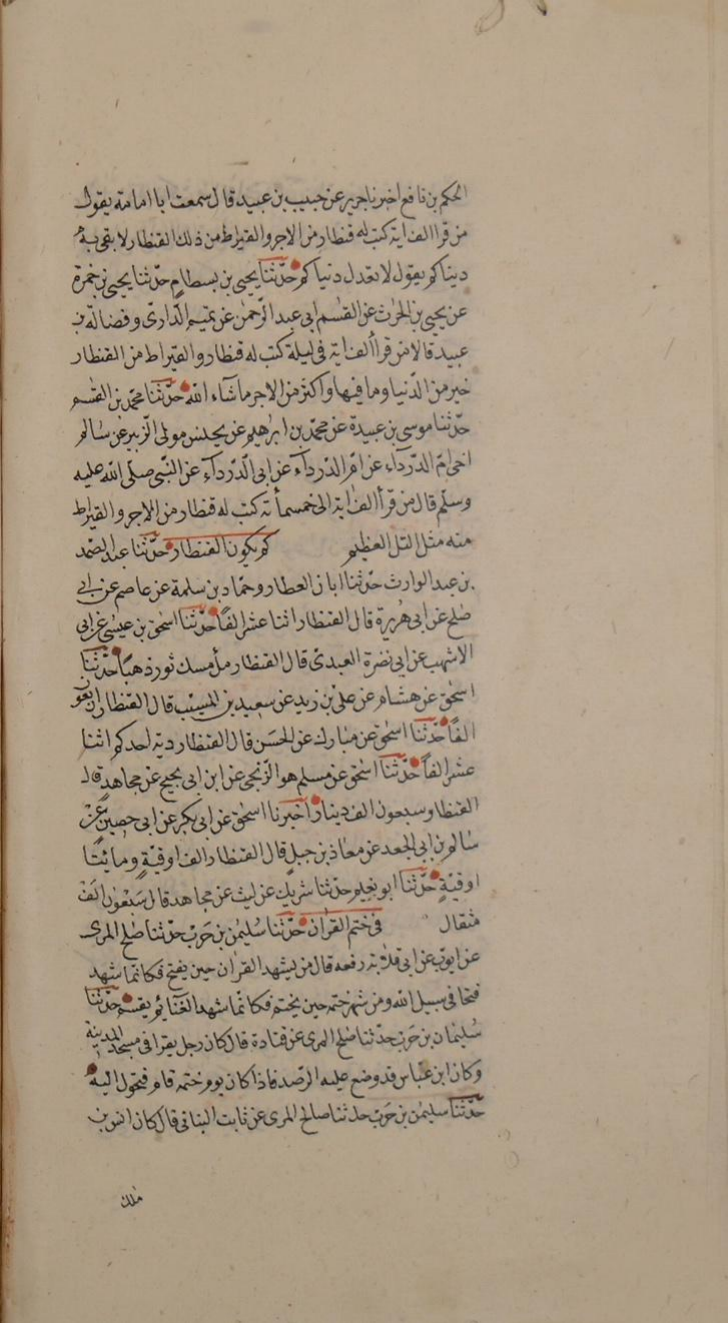 الحكم بن نافع اخبرنا جرير عن حبيب بن عبيد قال سمعت ابا امامة يقول
من قرا الف اية كتب له قنطار من الاجر والقيراط من ذلك القنطار لا يفى به
دنياكم يقول لا تعدل دنياكم حدّثنا يحيى بن بسطام حدّثنا يحيى بن حمزة
عن يحيى بن الحرث عن القسم ابى عبد الرّحمن عن تميم الدّارى وفضالة بن
عبيد قالا من قرأ الف اية فى ليلة كتب له قنطار والقيراط من القنطار
خير من الدّنيا وما فيها واكثر من الاجر ما شاء الله حدّثنا محمّد بن القسم
حدّثنا موسى بن عبيدة عن محمّد بن ابرهيم عن يحلنس مولى الزّبير عن سالم
اخى امّ الدّرداء عن امّ الدّرداء عن ابى الدّرداء عن النّبى صلّى الله عليه
وسلّم قال من قرأ الف اية الى خمسمأئة كتب له قنطار من الاجر والقيراط
منه مثل التل العظيم كم يكون القنطار حدّثنا عبد الصّمد
بن عبد الوارث حدّثنا ابان العطار وحمّاد بن سلمة عن عاصم عن ابى
صلح عن ابى هريرة قال القنطار اثنا عشر الفًا حدّثنا اسحٰق بن عيسى عن ابى
الاشهب عن ابى نضرة العبدى قال القنطار ملأ مسك ثور ذهبًا حدّثنا
اسحٰق عن هشام عن على بن زيد عن سعيد بن المسيّب قال القنطار اربعون
الفًا حدّثنا اسحٰق عن مبارك عن الحسن قال القنطار دية احدكم اثنا
عشر الفًا حدّثنا اسحٰق عن مسلم هو الزّنجى عن ابن ابى نجيح عن مجاهد قال
القنطار سبعون الف دينار اخبرنا اسحٰق عن ابى بكر عن ابى حصين عن
سالم بن ابى الجعد عن معاذ بن جبل قال القنطار الف اوقيةٍ ومايتا
اوقيةٍ حدّثنا ابو نعيم حدّثنا شريك عن ليث عن مجاهد قال سبعون الف
مثقال فى ختم القران حدّثنا سليمٰن بن حرب حدّثنا صلح المرى
عن ايوب عن ابى قلابة رفعه قال من شهد القرٰان حين يفتح فكانّما شهد
فتحا فى سبيل الله ومن شهد ختمه حين يختم فكانّما شهد الغنائم يقسم حدّثنا
سليمان بن حرب حدّثنا صلح المرى عن قتادة قال كان رجل يقرا فى مسجد المدينة
وكان ابن عبّاس قد وضع عليه الرّصد فاذا كان يوم ختمه قام فتحول اليه
حدّثنا سليمٰن بن حرب حدثنا صالح المرى عن ثابت البنانى قال كان انس بن
ملك